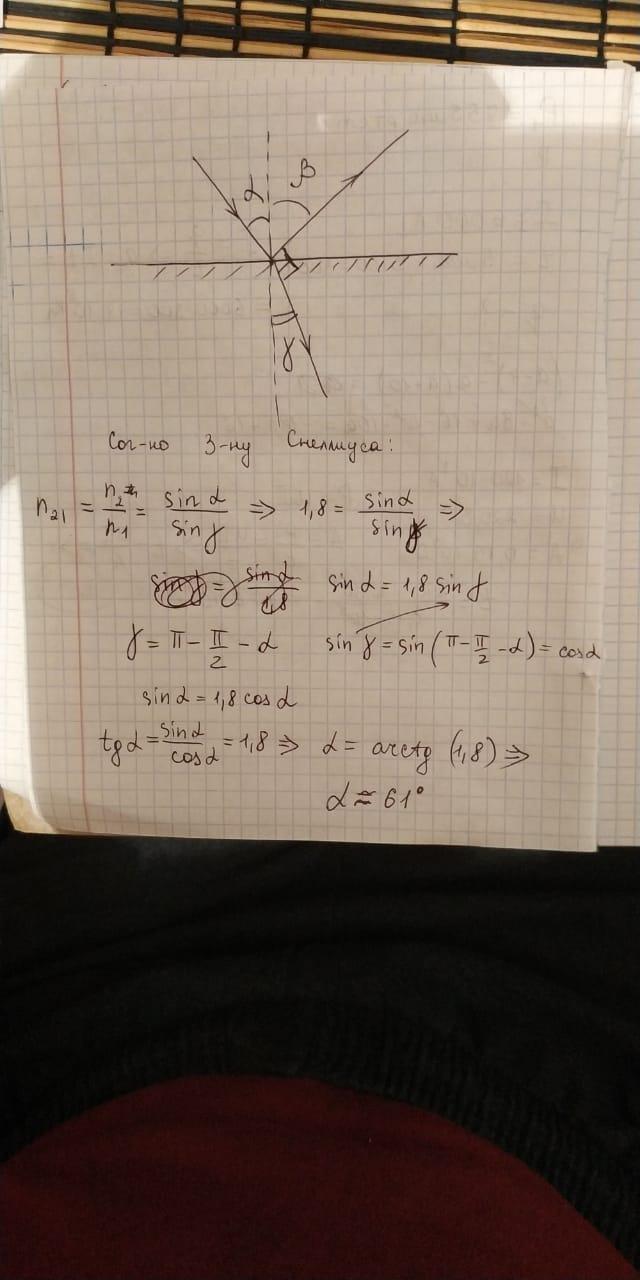 α β
γ
Сог-но З-ну Снеллиуса:
n₂₁ = n₂/n₁ = sin α/sin γ ⇒ 1,8 = sin α/sin γ ⇒
sin α = 1,8 sin γ
γ = π - π/2 - α sin γ = sin(π - π/2 - α) = cos α
sin α = 1,8 cos α
tg α = sin α/cos α = 1,8 ⇒ α = arctg (1,8) ⇒
α ≈ 61°